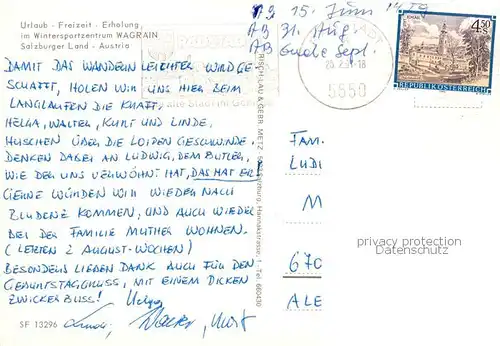 Urlaub - Freizeit - Erholung
im Wintersportzentrum WAGRAIN
Salzburger Land - Austria
DAMIT DAS WANDERN LEICHTER WIRD GE-
SCHAFFT, HOLEN WIR UNS HIER BEIM
LANGLAUFEN DIE KRAFT.
HELGA, WALTER, KURT UND LINDE,
HUSCHEN ÜBER DIE LOIPEN GESCHWINDE.
DENKEN DABEI AN LUDWIG, DEM BUTLER,
WIE DER UNS VERWÖHNT HAT, DAS HAT ER!
GERNE WÜRDEN WIR WIEDER NACH
KOMMEN, UND AUCH WIEDER
BEI DER FAMILIE MUTHER WOHNEN.
(LETZTEN 2 AUGUST-WOCHEN)
BESONDERS LIEBEN DANK AUCH FÜR DEN
GEBURTSTAGGRUSS, MIT EINEM DICKEN
ZWICKERBUSS! Helga
Walter, Kurt
SF 13296
AB 15. Juni
AB 31. Aug
AB Ende Sept.
RADSTADT
5550
4.50
S
REPUBLIK ÖSTERREICH
FAM.
LUDI
M
670
ALE
privacy protection
Datenschutz